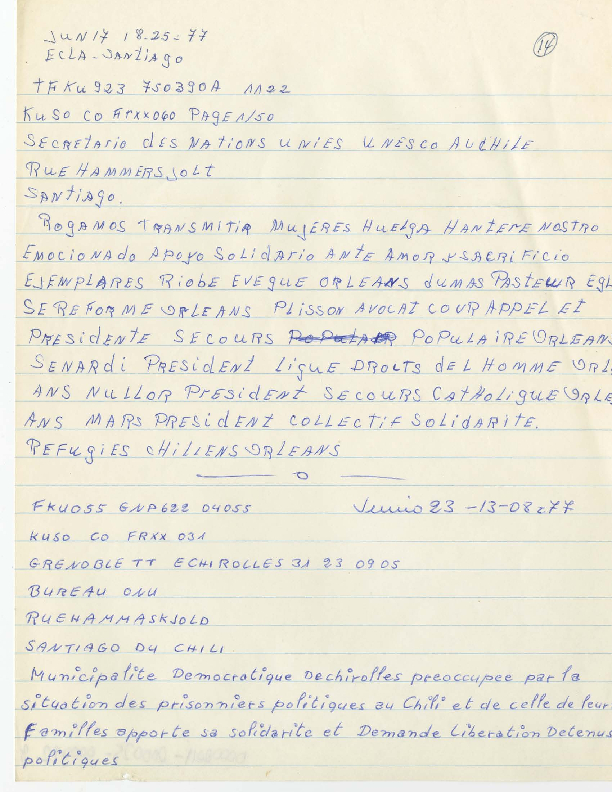 JUN 17 18-25=77
14
ECLA-SANTIAGO
TFKU 923 750390A 1122
KUSO CO FRXX060 PAGE 1/50
SECRETARIO DES NATIONS UNIES UNESCO AUCHILE
RUE HAMMERSJOLT
SANTIAGO.
ROGAMOS TRANSMITIR MUJERES HUELGA HANTERE NOSTRO
EMOCIONADO APOYO SOLIDARIO ANTE AMOR Y SACRIFICIO
EJEMPLARES RIOBE EVEGUE ORLEANS DUMAS PASTEUR EGL
SE REFORME ORLEANS PLISSON AVOCAT COUR APPEL ET
PRESIDENTE SECOURS POPULAIRE ORLEANS
SENARDI PRESIDENT LIGUE DROCTS DEL HOMME ORLE
ANS NULLOR PRESIDENT SECOURS CATHOLIGUE ORLE
ANS MARS PRESIDENT COLLECTIF SOLIDARITE.
REFUGIES CHILIENS ORLEANS
FKU055 GNP622 04055 Junio 23 -13-08=77
KUSO CO FRXX 031
GRENOBLE TT ECHIROLLES 31 23 0905
BUREAU ONU
RUEHAMMASKJOLD
SANTIAGO DU CHILI
Municipalite Democratique Dechirolles preoccupee par la
situation des prisonniers politiques au Chili et de celle de leur
Familles apporte sa solidarite et Demande Liberation Detenus
politiques